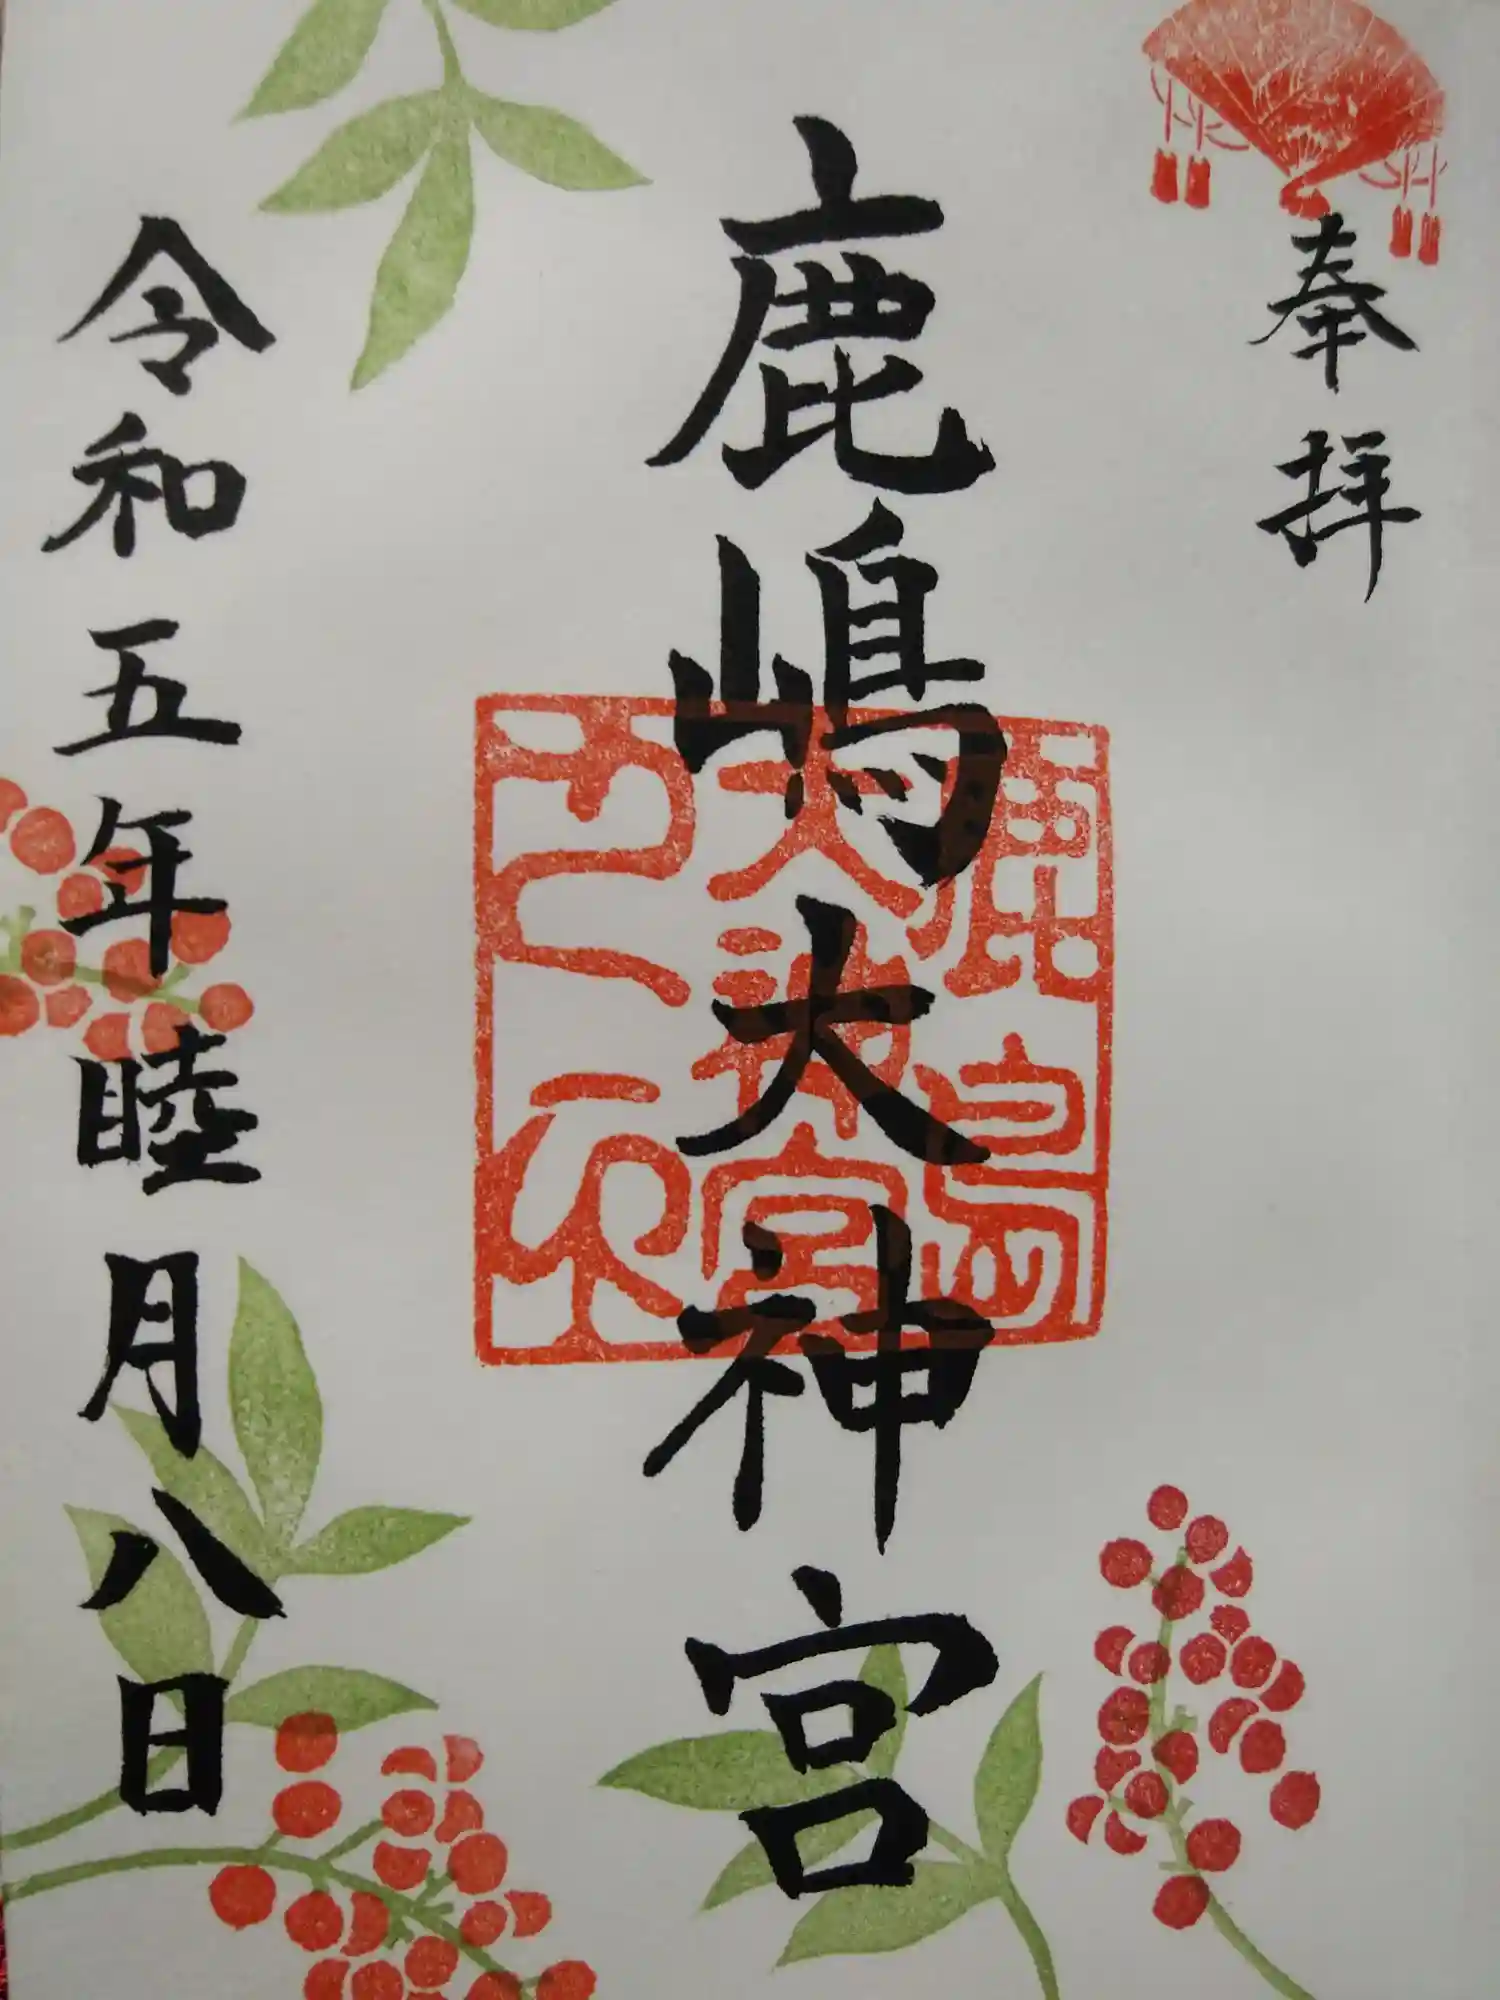 奉拝
鹿嶋大神宮
鹿嶋
大神宮
之印
令和五年睦月八日